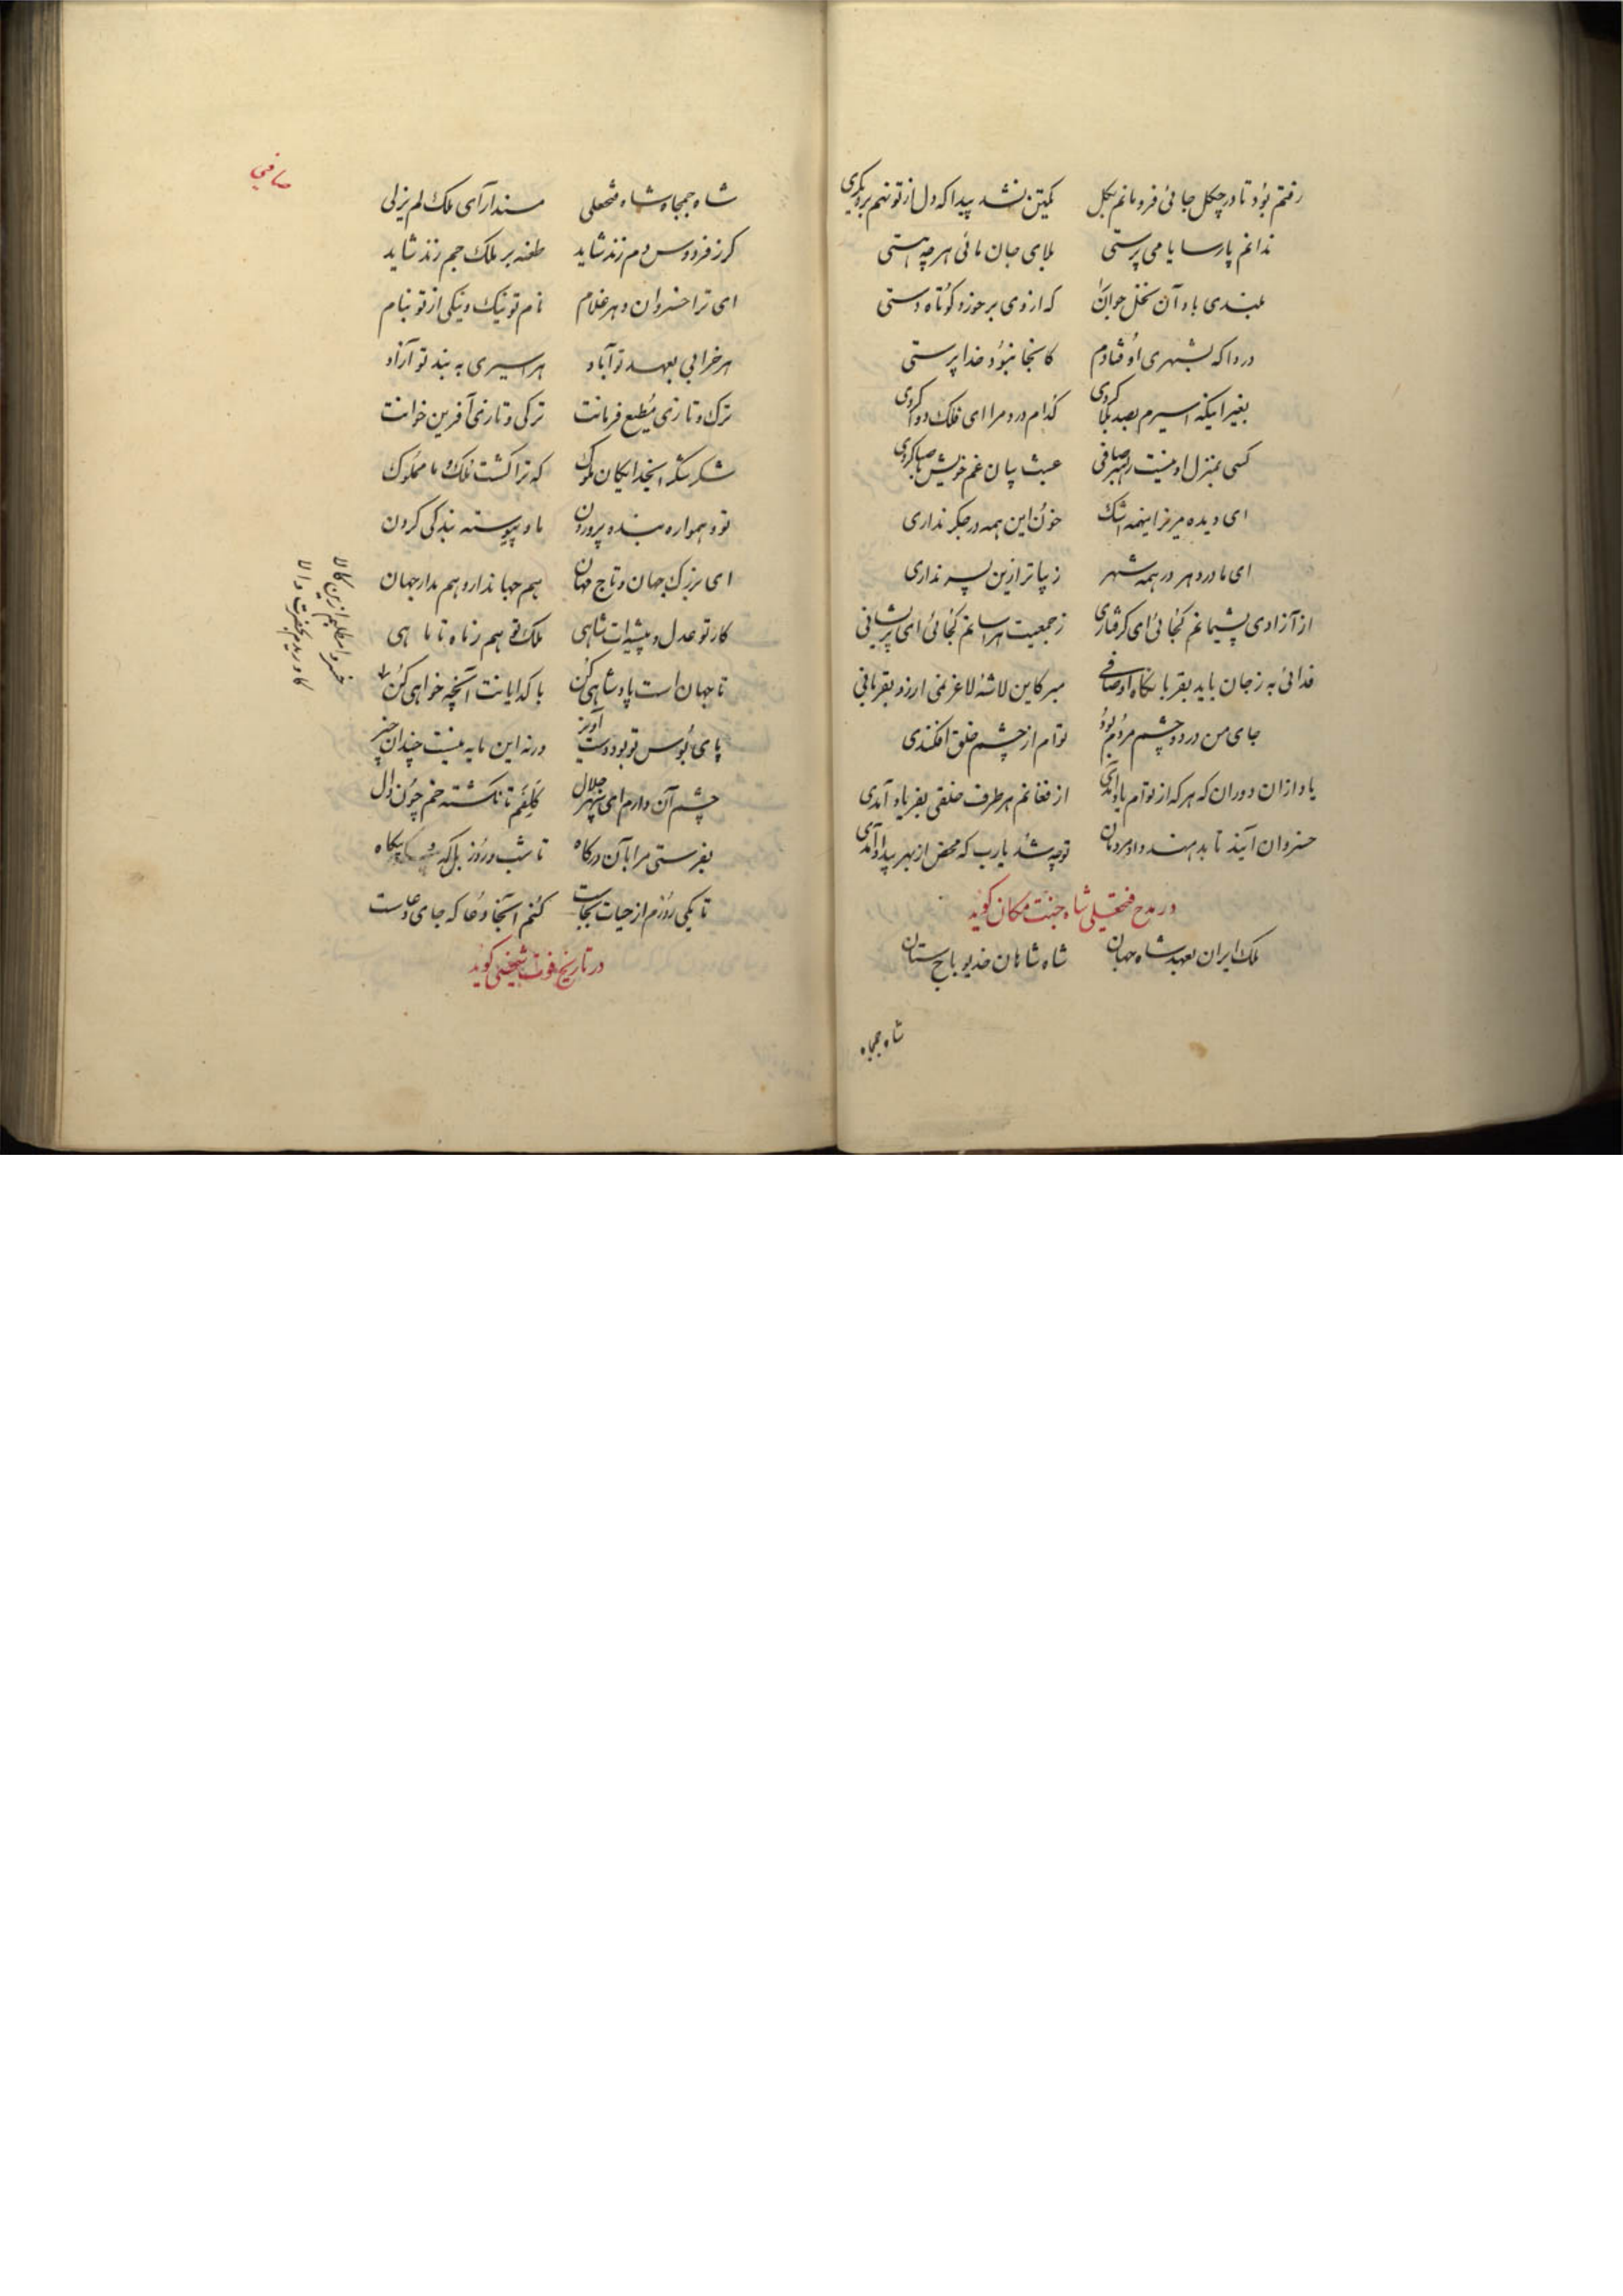 رفتم بود تا در چکل جائی فرو مانم بکل یکتن نشد پیدا که دل از تو نهم بر دیگری
ندانم پارسا یا می پرستی بلای جان مائی هر چه هستی
بلندی باد آن نخل جوانرا که از وی بر خورد کوتاه دستی
دردا که بشهری اوفتادم کانجا نبود خدا پرستی
بغیر اینکه اسیرم بصد بلا کردی کدام درد مرا ای فلک دوا کردی
کسی بمنزل او نیست رهبر صافی عبث بیان غم خویش با صبا کردی
ای دیده مریز اینهمه اشک خون این همه در جکر نداری
ای مادر دهر در همه شهر زیباتر ازین پسر نداری
از آزادی پشیمانم کجائی ای کرفتاری ز جمعیت هراسانم کجائی ای پریشانی
فدائی به ز جان باید بقربانکاه او صافی مبر کاین لاشهٔ لاغر نمی ارزد بقربانی
جای من در دو چشم مردم بود توام از چشم خلق افکندی
یاد ازان دوران که هر که از توام یاد آمدی از فغانم هر طرف خلقی بفریاد آمدی
خسروان آیند تا بدهند داد مردمان تو چه شد یارب که محض از بهر بیداد آمدی
در مدح فتحعلی شاه جنت مکان کوید
ملک ایران بعهد شاه جهان شاه شاهان خدیو باج ستان
شاه جمجاه
صافی
شاه جمجاه شاه فتحعلی مسند آرای ملک لم یزلی
کر ز فردوس دم زند شاید طعنه بر ملک جم زند شاید
ای ترا خسروان دهر غلام نام تو نیک و نیکی از تو بنام
هر خرابی بعهد تو آباد هر اسیری به بند تو آزاد
ترک و تازی مطیع فرمانت ترکی و تازی آفرین خوانت
شکر لله ایخدایکان ملوک که ترا کشت ملک و ما مملوک
تو و همواره بنده پروردن ما و پیوسته بندکی کردن
ای بزرک جهان و تاج مهان هم جهاندار و هم مدار جهان
کار تو عدل و پیشه ات شاهی ملک تو هم ز ماه تا ماهی
تا جهان است پادشاهی کن با کدایانت آنچه خواهی کن
پای بوس تو بود دست آویز ورنه این مایه نیست چندان چیز
چشم آن دارم ای سپهر جلال کالفم تا نکشته خم چون دال
بفرستی مرا بآن درکاه تا شب و روز بلکه بیکاه
تا یکی روزم از حیات بجاست کنم آنجا دعا که جای دعاست
در تاریخ فوت شخصی کوید